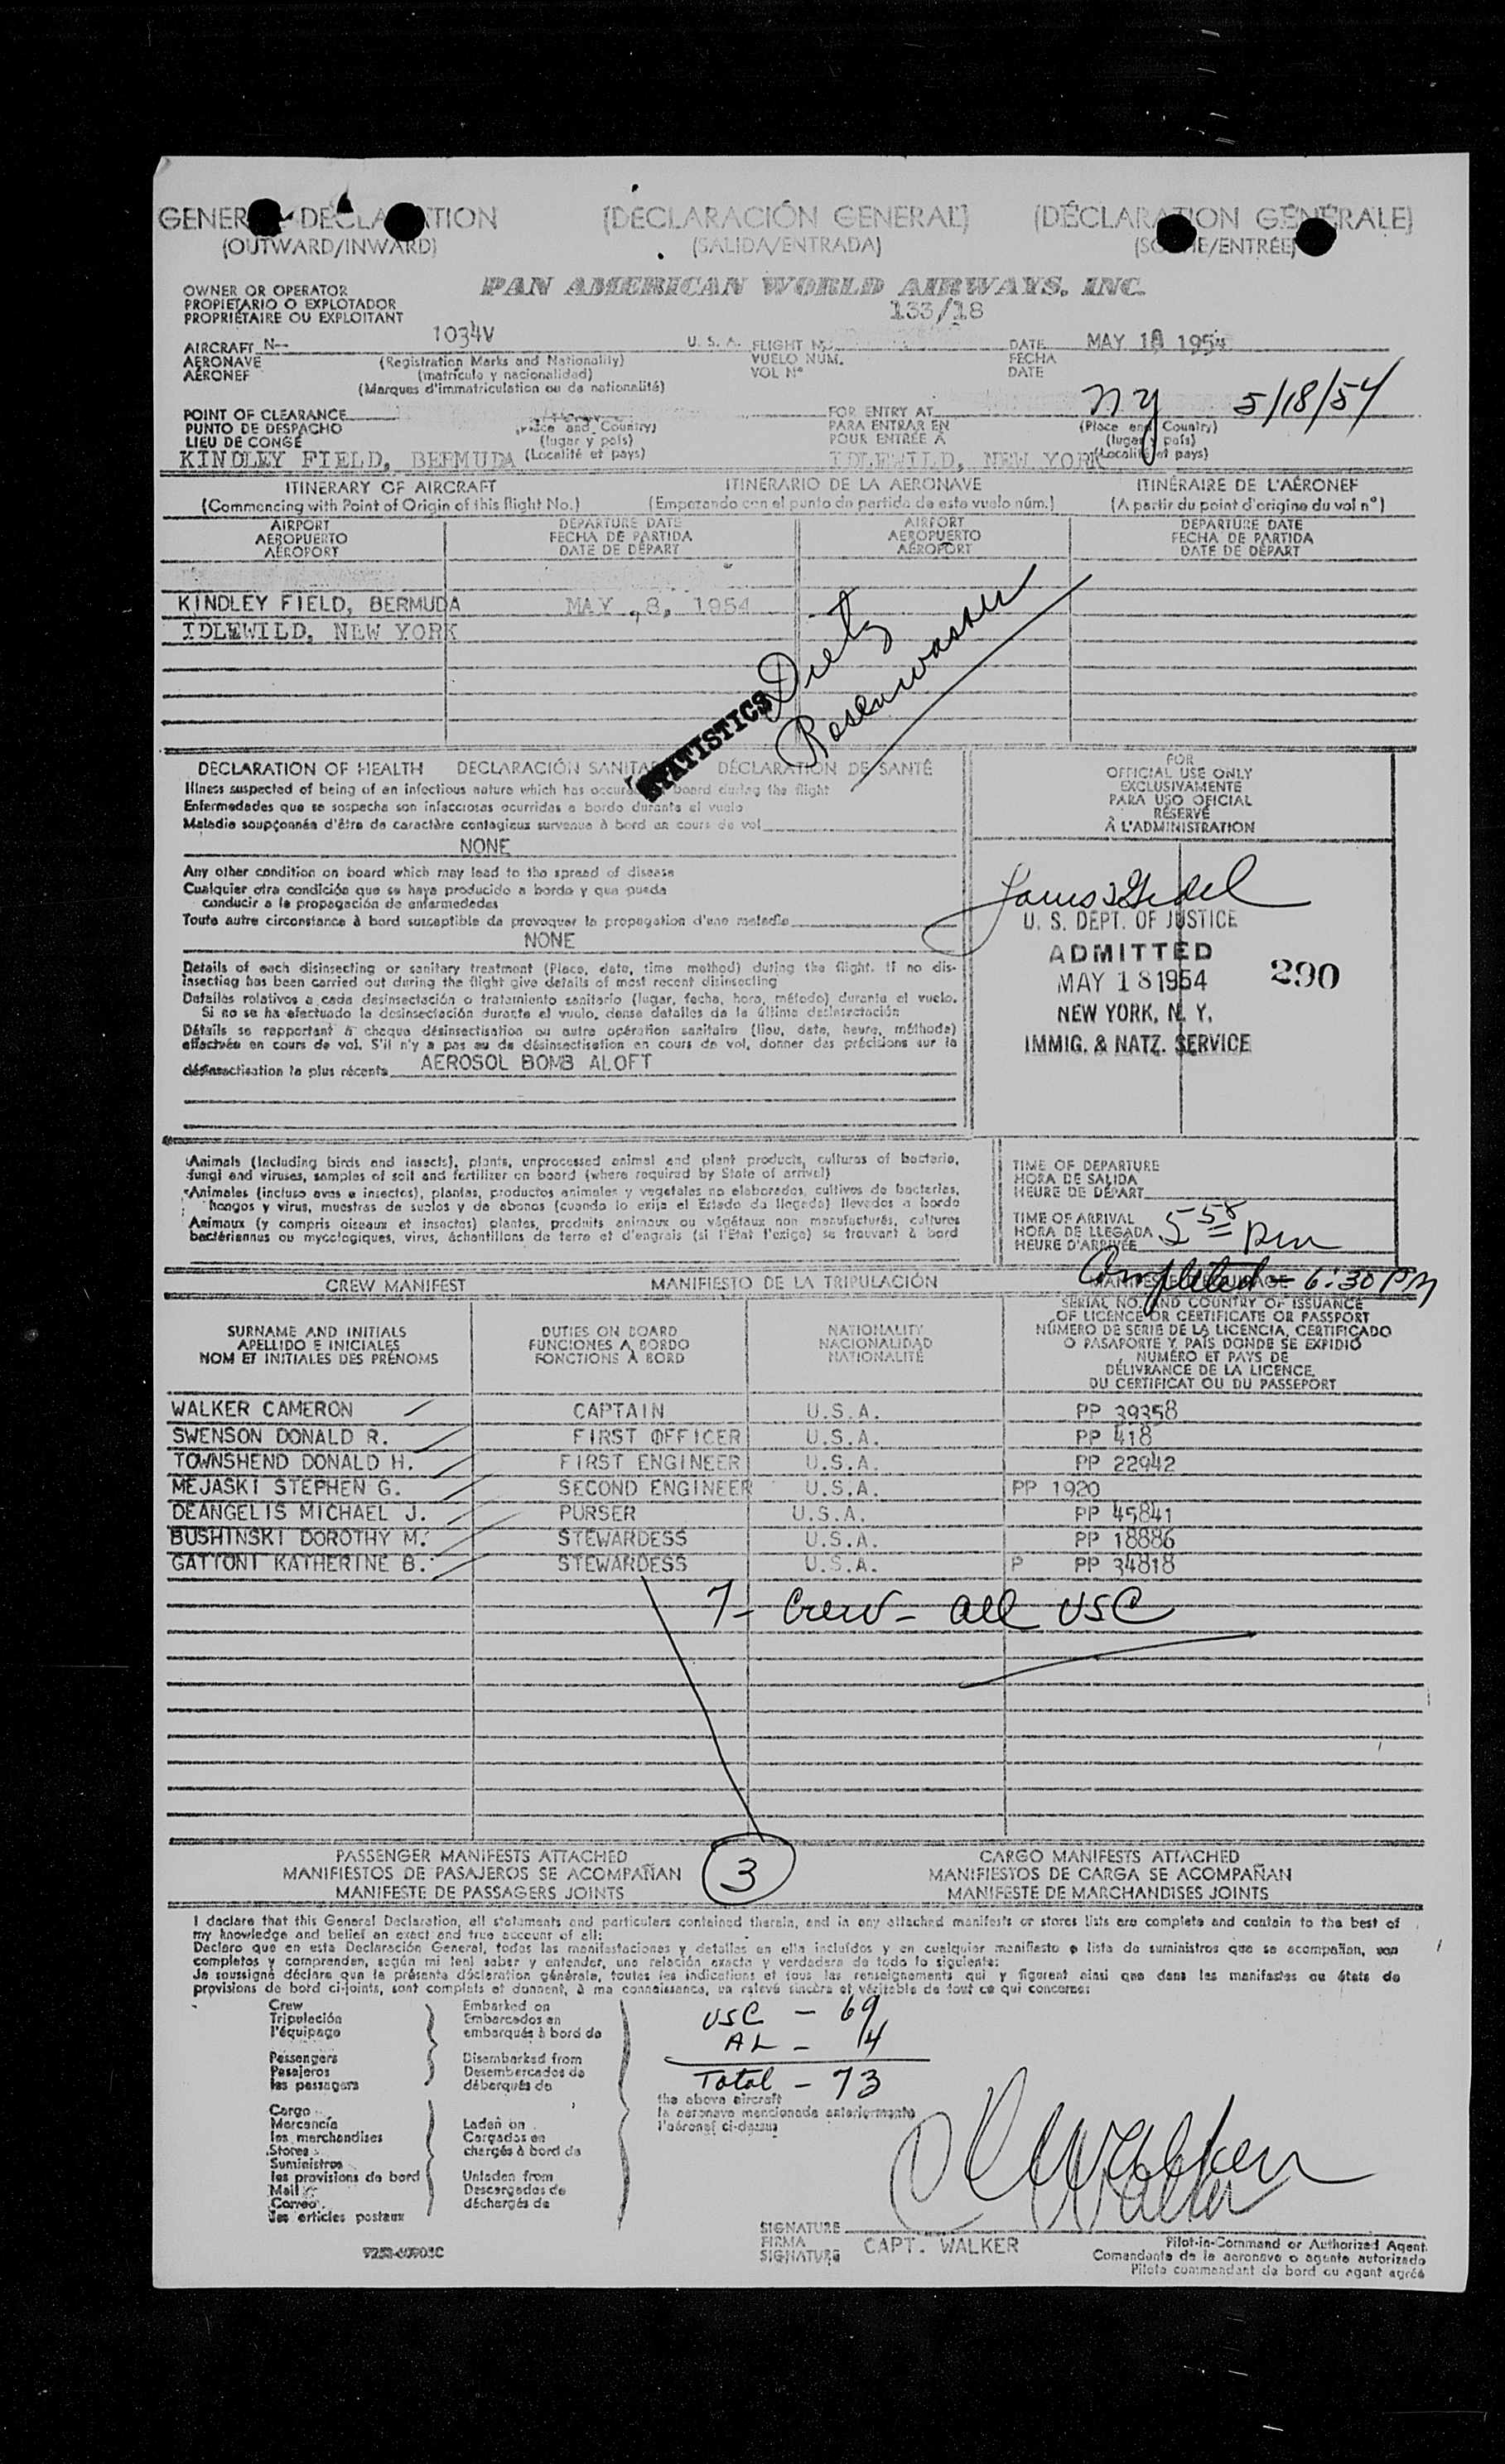 GENERAL DECLARATION (DECLARACIÓN GENERAL) (DÉCLARATION GÉNÉRALE)
(OUTWARD/INWARD) (SALIDA/ENTRADA) (SORTIE/ENTRÉE)
OWNER OR OPERATOR PAN AMERICAN WORLD AIRWAYS, INC.
PROPIETARIO O EXPLOTADOR
PROPRIÉTAIRE OU EXPLOITANT 133/18
AIRCRAFT N- 1034V U. S. A. FLIGHT NO. DATE MAY 18 1954
AERONAVE (Registration Marks and Nationality) VUELO NÚM. FECHA
AÉRONEF (matrícula y nacionalidad) VOL Nº DATE
(Marques d'immatriculation ou de nationalité)
POINT OF CLEARANCE FOR ENTRY AT NY 5/18/54
PUNTO DE DESPACHO (Place and Country) PARA ENTRAR EN (Place and Country)
LIEU DE CONGÉ (lugar y país) POUR ENTRÉE À (lugar y país)
KINDLEY FIELD, BERMUDA (Localité et pays) IDLEWILD, NEW YORK (Localité et pays)
ITINERARY OF AIRCRAFT ITINERARIO DE LA AERONAVE ITINÉRAIRE DE L'AÉRONEF
(Commencing with Point of Origin of this flight No.) (Empezando con el punto de partida de este vuelo núm.) (A partir du point d'origine du vol nº)
AIRPORT DEPARTURE DATE AIRPORT DEPARTURE DATE
AEROPUERTO FECHA DE PARTIDA AEROPUERTO FECHA DE PARTIDA
AÉROPORT DATE DE DÉPART AÉROPORT DATE DE DÉPART
KINDLEY FIELD, BERMUDA MAY 18, 1954
IDLEWILD, NEW YORK
Dietz
Rosenwasser
STATISTICS
DECLARATION OF HEALTH DECLARACIÓN SANITARIA DÉCLARATION DE SANTÉ
Illness suspected of being of an infectious nature which has occurred on board during the flight
Enfermedades que se sospecha son infecciosas ocurridas a bordo durante el vuelo
Maladie soupçonnée d'être de caractère contagieux survenue à bord en cours de vol
NONE
Any other condition on board which may lead to the spread of disease
Cualquier otra condición que se haya producido a bordo y que pueda
conducir a la propagación de enfermedades
Toute autre circonstance à bord susceptible de provoquer la propagation d'une maladie
NONE
Details of each disinsecting or sanitary treatment (Place, date, time method) during the flight. If no dis-
insecting has been carried out during the flight give details of most recent disinsecting
Detalles relativos a cada desinsectación o tratamiento sanitario (lugar, fecha, hora, método) durante el vuelo.
Si no se ha efectuado la desinsectación durante el vuelo, dense detalles de la última desinsectación
Détails se rapportant à chaque désinsectisation ou autre opération sanitaire (lieu, date, heure, méthode)
effectuée en cours de vol. S'il n'y a pas eu de désinsectisation en cours de vol, donner des précisions sur la
désinsectisation la plus récente AEROSOL BOMB ALOFT
FOR
OFFICIAL USE ONLY
EXCLUSIVAMENTE
PARA USO OFICIAL
RÉSERVÉ
À L'ADMINISTRATION
U. S. DEPT. OF JUSTICE
ADMITTED
MAY 18 1954 290
NEW YORK, N. Y.
IMMIG. & NATZ. SERVICE
Animals (Including birds and insects), plants, unprocessed animal and plant products, cultures of bacteria,
fungi and viruses, samples of soil and fertilizer on board (where required by State of arrival)
Animales (incluso aves e insectos), plantas, productos animales y vegetales no elaborados, cultivos de bacterias,
hongos y virus, muestras de suelos y de abonos (cuando lo exija el Estado de llegada) llevados a bordo
Animaux (y compris oiseaux et insectes) plantes, produits animaux ou végétaux non manufacturés, cultures
bactériennes ou mycologiques, virus, échantillons de terre et d'engrais (si l'Etat l'exige) se trouvant à bord
TIME OF DEPARTURE
HORA DE SALIDA
HEURE DE DÉPART
TIME OF ARRIVAL
HORA DE LLEGADA 5 58 pm
HEURE D'ARRIVÉE
Completed - 6:30 PM
CREW MANIFEST MANIFIESTO DE LA TRIPULACIÓN
SURNAME AND INITIALS DUTIES ON BOARD NATIONALITY SERIAL NO. AND COUNTRY OF ISSUANCE
APELLIDO E INICIALES FUNCIONES A BORDO NACIONALIDAD OF LICENCE OR CERTIFICATE OR PASSPORT
NOM ET INITIALES DES PRÉNOMS FONCTIONS À BORD NATIONALITÉ NÚMERO DE SERIE DE LA LICENCIA, CERTIFICADO
O PASAPORTE Y PAÍS DONDE SE EXPIDIÓ
NUMÉRO ET PAYS DE
DÉLIVRANCE DE LA LICENCE,
DU CERTIFICAT OU DU PASSEPORT
WALKER CAMERON CAPTAIN U.S.A. PP 39358
SWENSON DONALD R. FIRST OFFICER U.S.A. PP 418
TOWNSHEND DONALD H. FIRST ENGINEER U.S.A. PP 22942
MEJASKI STEPHEN G. SECOND ENGINEER U.S.A. PP 1920
DEANGELIS MICHAEL J. PURSER U.S.A. PP 45841
BUSHINSKI DOROTHY M. STEWARDESS U.S.A. PP 18886
GATTONI KATHERINE B. STEWARDESS U.S.A. P PP 34818
7 - Crew - all USC
PASSENGER MANIFESTS ATTACHED 3 CARGO MANIFESTS ATTACHED
MANIFIESTOS DE PASAJEROS SE ACOMPAÑAN MANIFIESTOS DE CARGA SE ACOMPAÑAN
MANIFESTE DE PASSAGERS JOINTS MANIFESTE DE MARCHANDISES JOINTS
I declare that this General Declaration, all statements and particulars contained therein, and in any attached manifests or stores lists are complete and contain to the best of
my knowledge and belief an exact and true account of all:
Declaro que en esta Declaración General, todas las manifestaciones y detalles en ella incluídos y en cualquier manifiesto o lista de suministros que se acompañan, son
completos y comprenden, según mi leal saber y entender, una relación exacta y verdadera de todo lo siguiente:
Je soussigné déclare que la présente déclaration générale, toutes les indications et tous les renseignements qui y figurent ainsi que dans les manifestes ou états de
provisions de bord ci-joints, sont complets et donnent, à ma connaissance, un relevé sincère et véritable de tout ce qui concerne:
Crew Embarked on
Tripulación Embarcados en USC - 69
l'équipage embarqués à bord de AL - 14
Passengers Disembarked from
Pasajeros Desembarcados de Total - 73
les passagers débarqués de the above aircraft
Cargo la aeronave mencionada anteriormente
Mercancía Laden on l'aéronef ci-dessus
les merchandises Cargados en
Stores chargés à bord de
Suministros
les provisions de bord Unladen from
Mail Descargados de
Correo déchargés de
les articles postaux
C Walker
Walker
SIGNATURE
FIRMA CAPT. WALKER Pilot-in-Command or Authorized Agent
SIGNATURE Comandante de la aeronave o agente autorizado
Pilote commandant de bord ou agent agréé